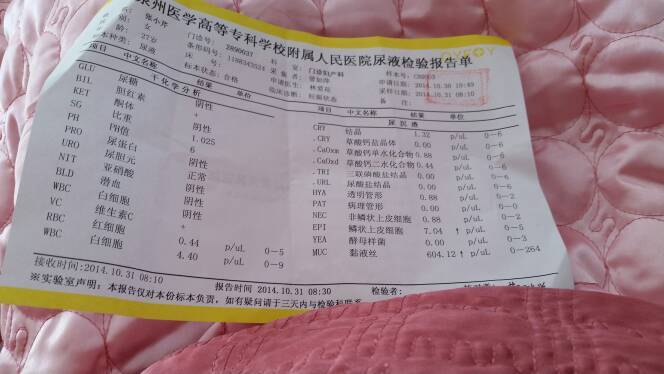 泉州医学高等专科学校附属人民医院尿液检验报告单
女 门诊号: 2890037 科 室: 门诊妇产科 样本号:
27岁 条形码号: 申请日期: 2014.10.30
样本种类: 尿液 床 号: 采样日期: 2014.10.31 08:10
标本状态: 合格 临床诊断: 妊娠状态 备 注:
项目 中文名称 结果 单位
干化学分析
GLU 尿糖 阴性
BIL 胆红素 +
KET 酮体 阴性
SG 比重 1.025
PH PH值 6
PRO 尿蛋白 阴性
URO 尿胆元 正常
NIT 亚硝酸 阴性
BLD 潜血 阴性
WBC 白细胞 阴性
VC 维生素C +
RBC 红细胞 0.44 p/uL 0-5
WBC 白细胞 4.40 p/uL 0-9
项目 中文名称 结果 单位
尿沉渣
.CRY 结晶 1.32 p/uL 0-6
.CaOx 草酸钙盐晶体 0.00 p/uL 0-6
.CaOxm 草酸钙单水化合物 0.88 p/uL 0-6
.CaOxd 草酸钙二水化合物 0.44 p/uL 0-6
.TRI 三联磷酸盐结晶 0.00 p/uL 0-6
.URL 尿酸盐结晶 0.00 p/uL 0-6
HYA 透明管形 0.88 p/uL 0-2
PAT 病理管形 0.00 p/uL
NEC 非鳞状上皮细胞 0.88 p/uL
EPI 鳞状上皮细胞 7.04 ↑ p/uL 0-5
YEA 酵母样菌 0.00 p/uL 0-3
MUC 黏液丝 604.12 ↑ p/uL 0-264
接收时间:2014.10.31 08:10 报告时间 2014.10.31 08:30 检验者:
※实验室声明: 本报告仅对本份标本负责,如有疑问请于三天内与检验科联系